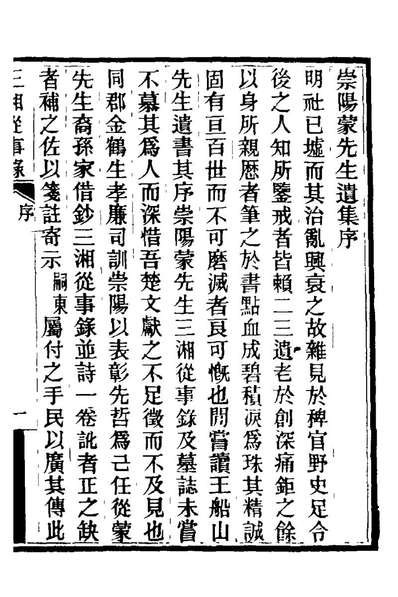 崇陽蒙先生遺集序
明社已墟而其治亂興衰之故雜見於稗官野史足令
後之人知所鑒戒者皆賴二三遺老於創深痛鉅之餘
以身所親歷者筆之於書點血成碧積淚爲珠其精誠
固有亘百世而不可磨滅者良可慨也閒嘗讀王船山
先生遺書其序崇陽蒙先生三湘從事錄及墓誌未嘗
不慕其爲人而深惜吾楚文獻之不足徵而不及見也
同郡金鶴生孝廉司訓崇陽以表彰先哲爲己任從蒙
先生裔孫家借鈔三湘從事錄並詩一卷訛者正之缺
者補之佐以箋註寄示嗣東屬付之手民以廣其傳此
三湘從事錄
序
一